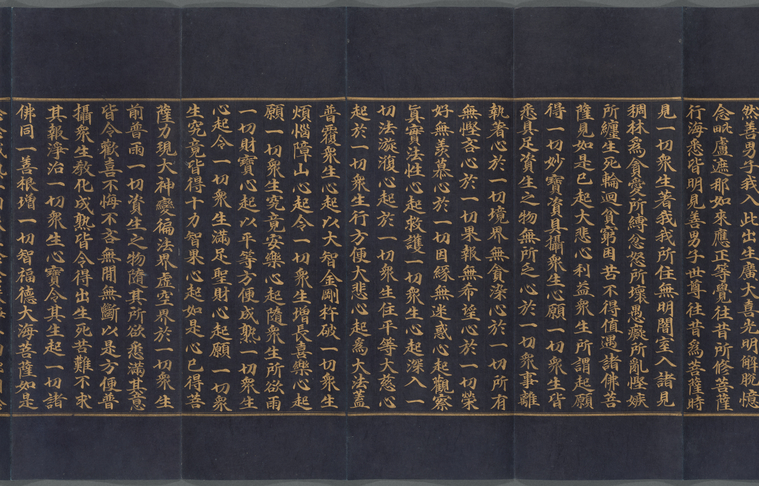 然善男子我入此出生廣大喜光明解脫憶
念毗盧遮那如來應正等覺往昔所修菩薩
行海悉皆明見善男子世尊往昔為菩薩時
見一切眾生著我我所住無明闇室入諸見
稠林為貪愛所縛忿怒所壞愚癡所亂慳嫉
所纏生死輪迴貧窮困苦不得值遇諸佛菩
薩見如是已起大悲心利益眾生所謂起願
得一切妙寶資具攝眾生心願一切眾生皆
悉具足資生之物無所乏心於一切眾事離
執著心於一切境界無貪染心於一切所有
無慳吝心於一切果報無希望心於一切榮
好無羨慕心於一切因緣無迷惑心起觀察
真實法性心起救護一切眾生心起深入一
切法漩澓心起於一切眾生住平等大慈心
起於一切眾生行方便大悲心起為大法蓋
普覆眾生心起以大智金剛杵破一切眾生
煩惱障山心起令一切眾生增長喜樂心起
願一切眾生究竟安樂心起隨眾生所欲雨
一切財寶心起以平等方便成熟一切眾生
心起令一切眾生滿足聖財心起願一切眾
生究竟皆得十力智果心起如是心已得菩
薩力現大神變徧法界虛空界於一切眾生
前普雨一切資生之物隨其所欲悉滿其意
皆令歡喜不悔不吝無間無斷以是方便普
攝眾生教化成熟皆令得出生死苦難不求
其報淨治一切眾生心寶令其生起一切諸
佛同一善根增一切智福德大海菩薩如是